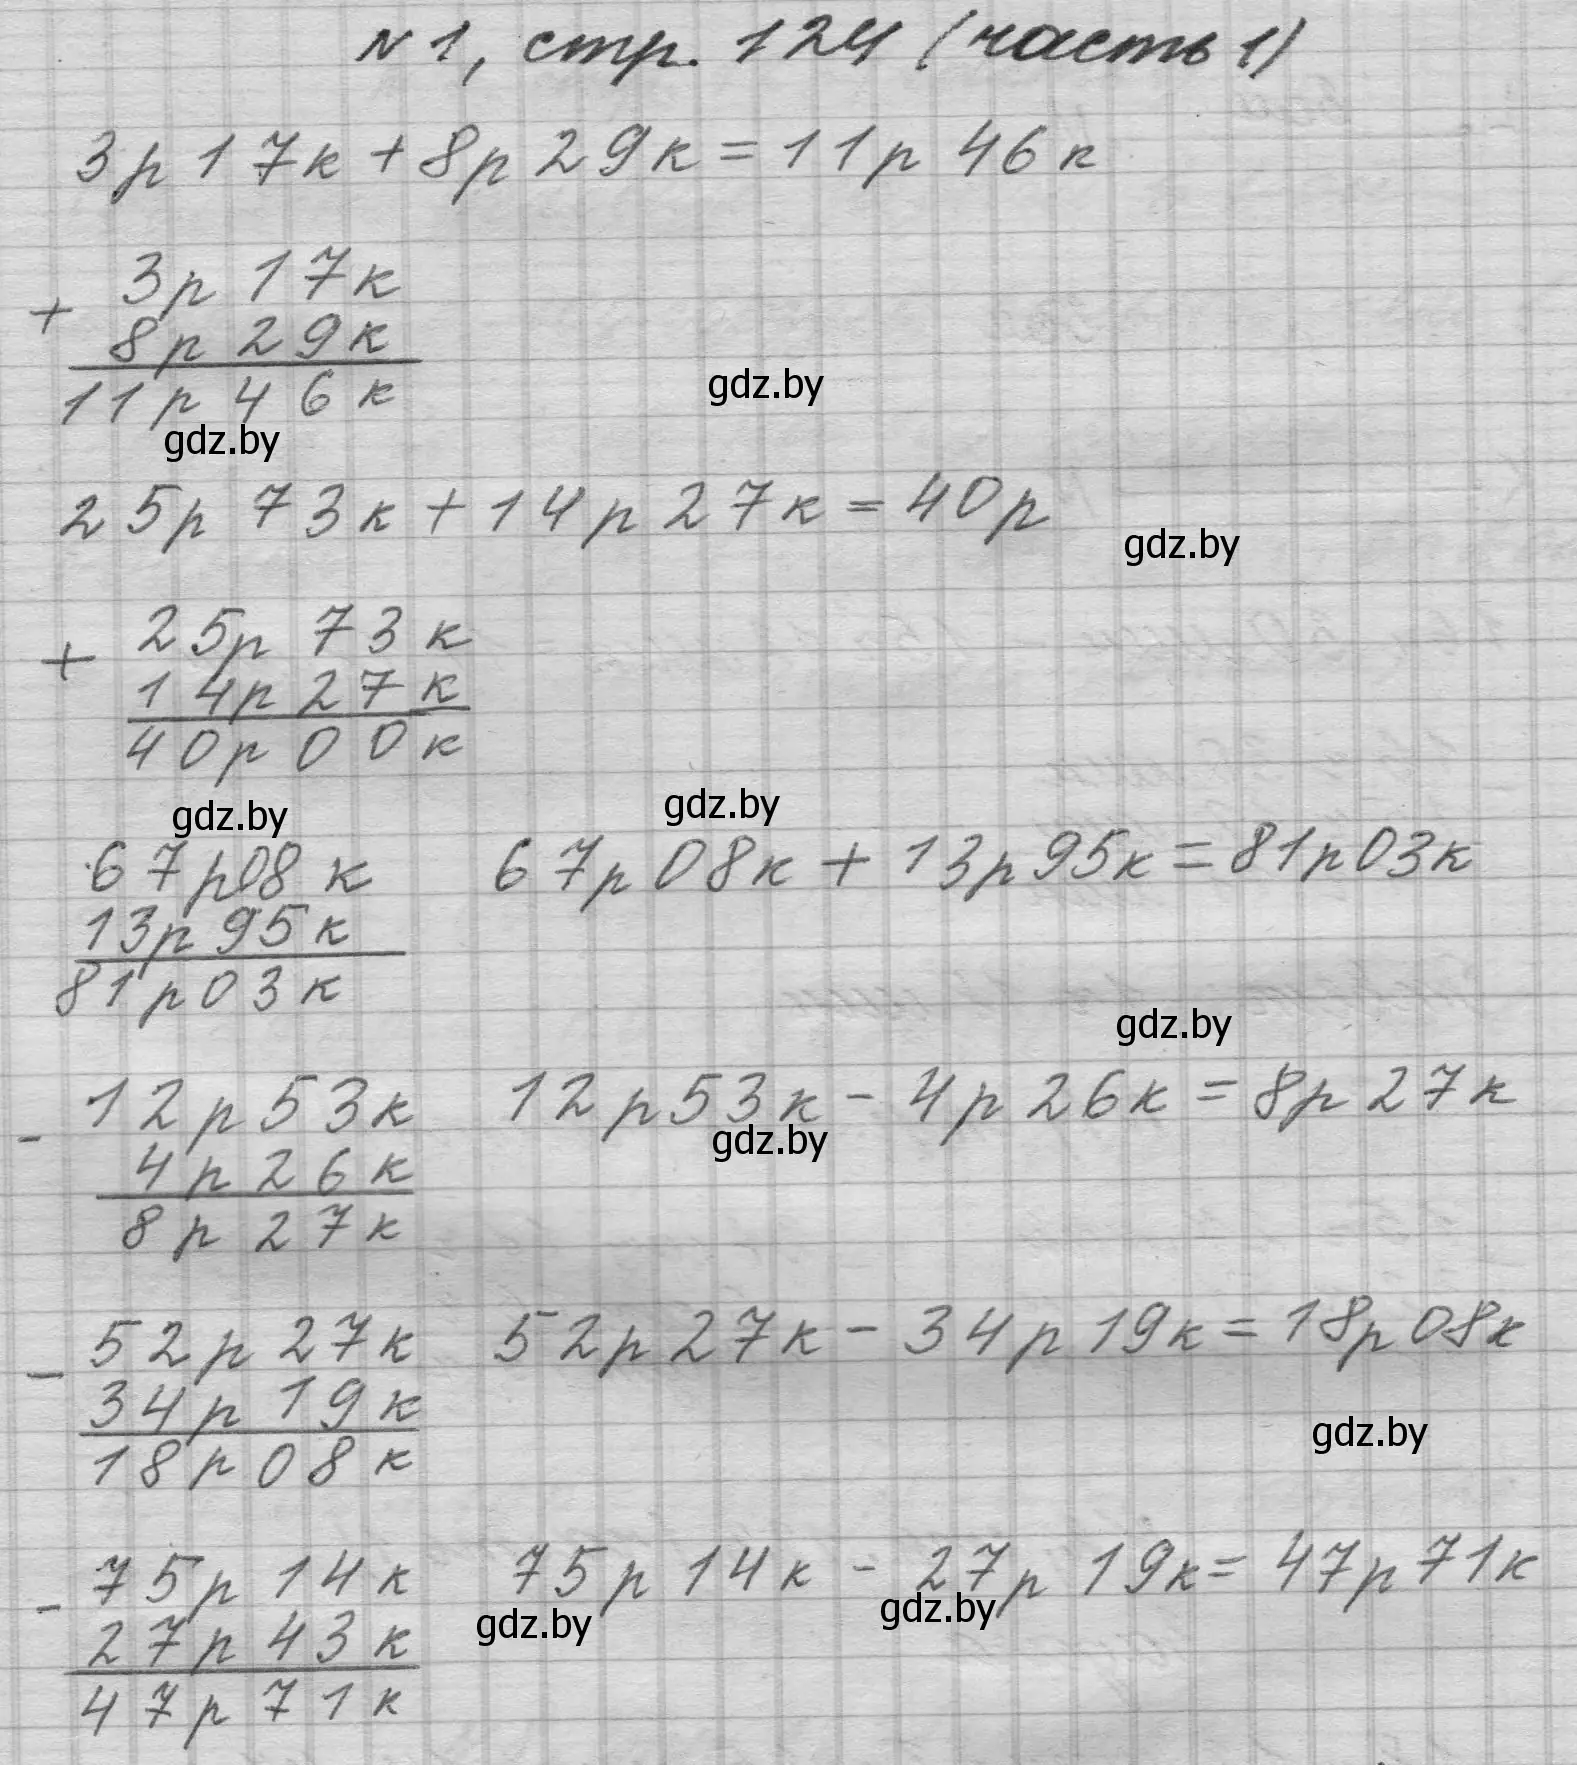 N1, стр. 124 (часть 1)
3р 17к + 8р 29к = 11р 46к
+ 3р 17к
8р 29к
11р 46к
gdz.by
gdz.by
25р 73к + 14р 27к = 40р
gdz.by
+ 25р 73к
14р 27к
40р 00к
gdz.by
gdz.by
67р08к
13р 95к
81р 03к
67р 08к + 13р 95к = 81р 03к
gdz.by
- 12р 53к
4р 26к
8р 27к
12р 53к - 4р 26к = 8р 27к
gdz.by
- 52р 27к
34р 19к
18р 08к
52р 27к - 34р 19к = 18р 08к
gdz.by
- 75р 14к
27р 43к
47р 71к
75р 14к - 27р 19к = 47р 71к
gdz.by
gdz.by